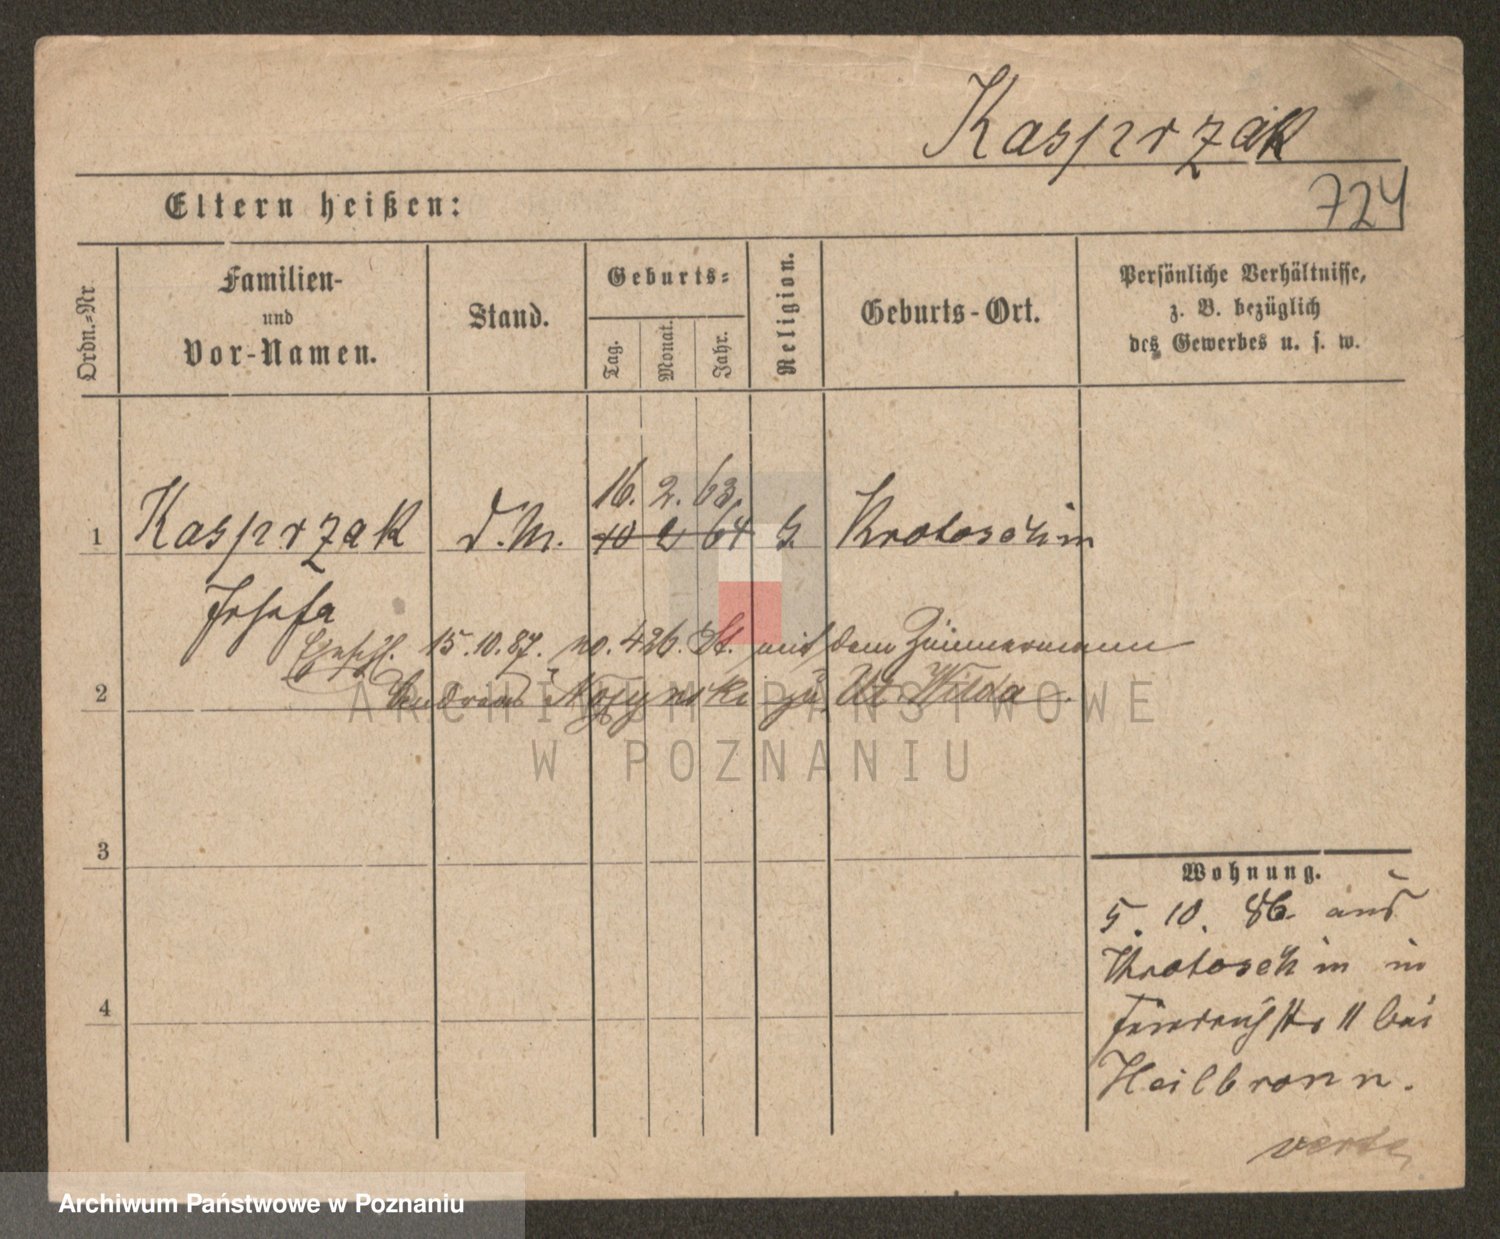 Kasprzak
724
Eltern heißen:
Ordn.=Nr
Familien-
und
Vor-Namen.
Stand.
Geburts=
Tag.
Monat.
Jahr.
Religion.
Geburts-Ort.
Persönliche Verhältnisse,
z. B. bezüglich
des Gewerbes u. s. w.
16. 2. 63.
1 Kasprzak D.M. 10 2 64 Krotoschin
Josefa
15.10.87. no. 426. St. mit dem Zimmermann
2 zu Wilda
ARCHIWUM PAŃSTWOWE
W POZNANIU
3
Wohnung.
5. 10. 86 aus
Krotoschin in
4
11 bei
Heilbronn.
Archiwum Państwowe w Poznaniu